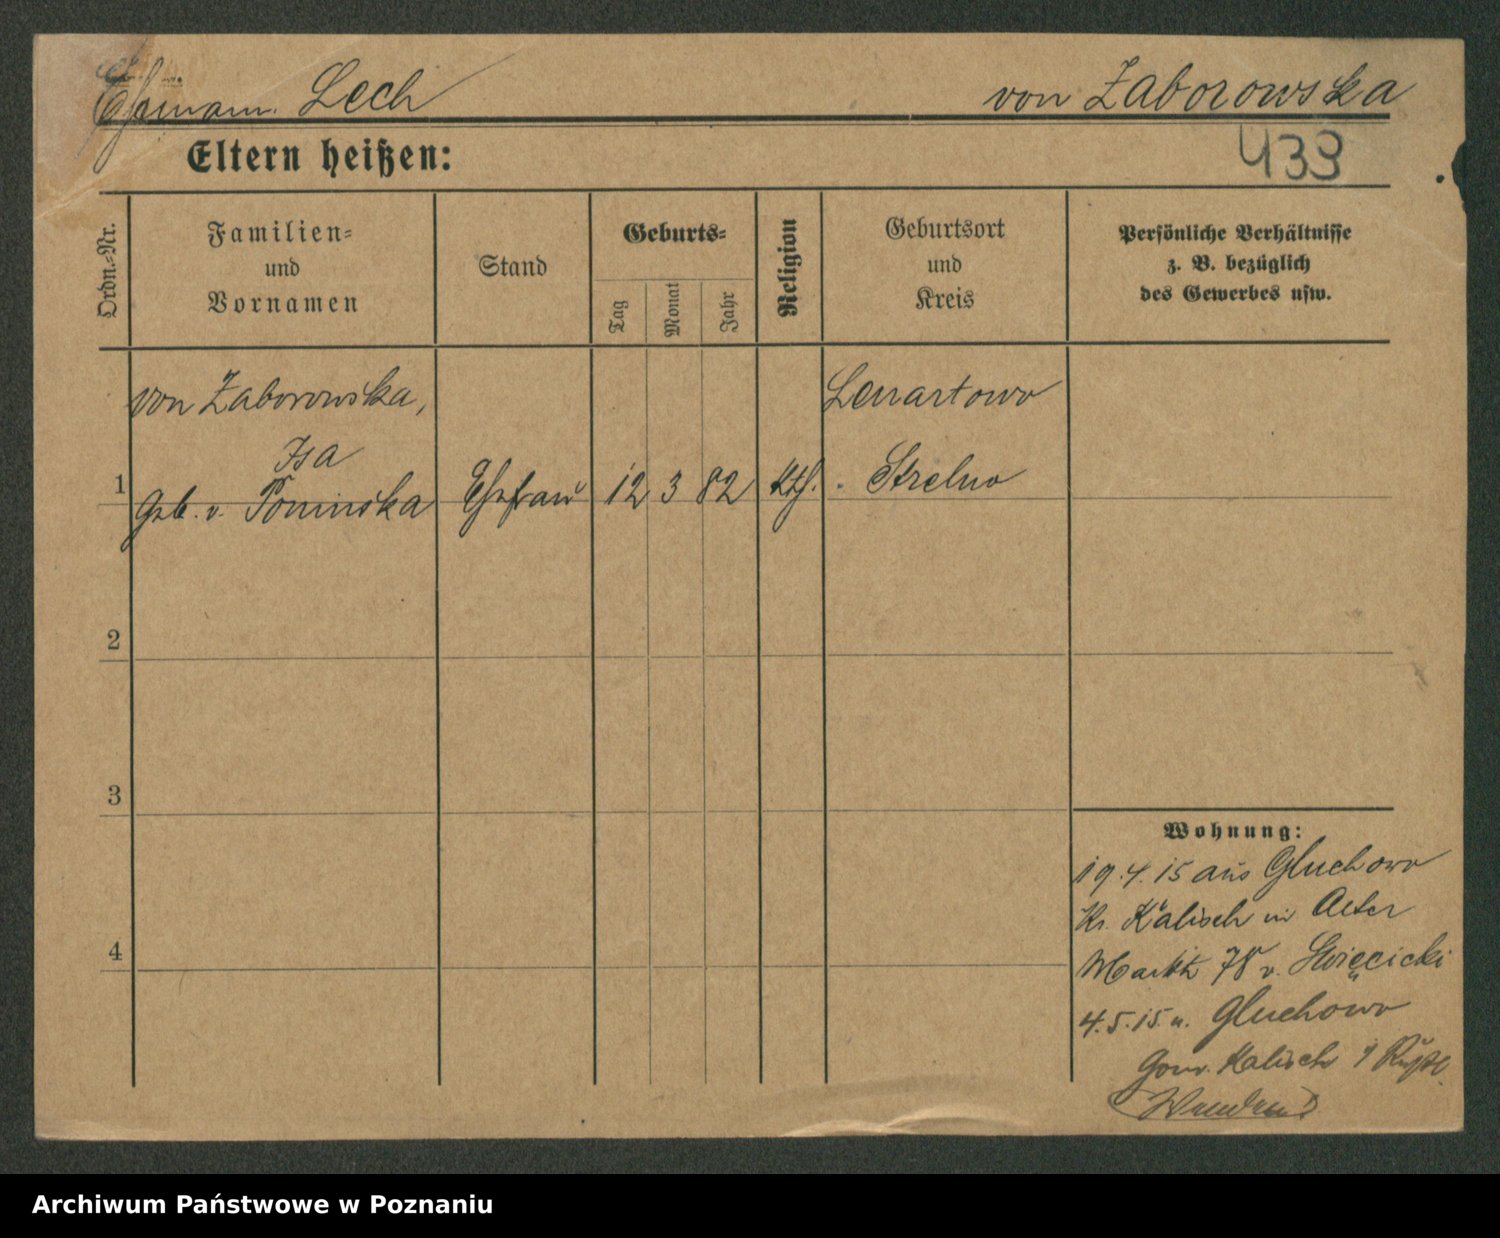 Ehemann Lech von Zaborowska
Eltern heißen: 433
Ordn.-Nr.
Familien-
und
Vornamen
Stand
Geburts-
Tag
Monat
Jahr
Religion
Geburtsort
und
Kreis
Persönliche Verhältnisse
z. B. bezüglich
des Gewerbes usw.
von Zaborowska, Lenartowo
Isa
1 Geb. v. Poninska Ehefrau 12 3 82 kth. Strelno
2
3
4
Wohnung:
19.4.15 aus Gluchowo
Kr. Kalisch in Alter
Markt 78 v. Swięcicki
4.5.15 n. Gluchowo
Gouv. Kalisch
Archiwum Państwowe w Poznaniu